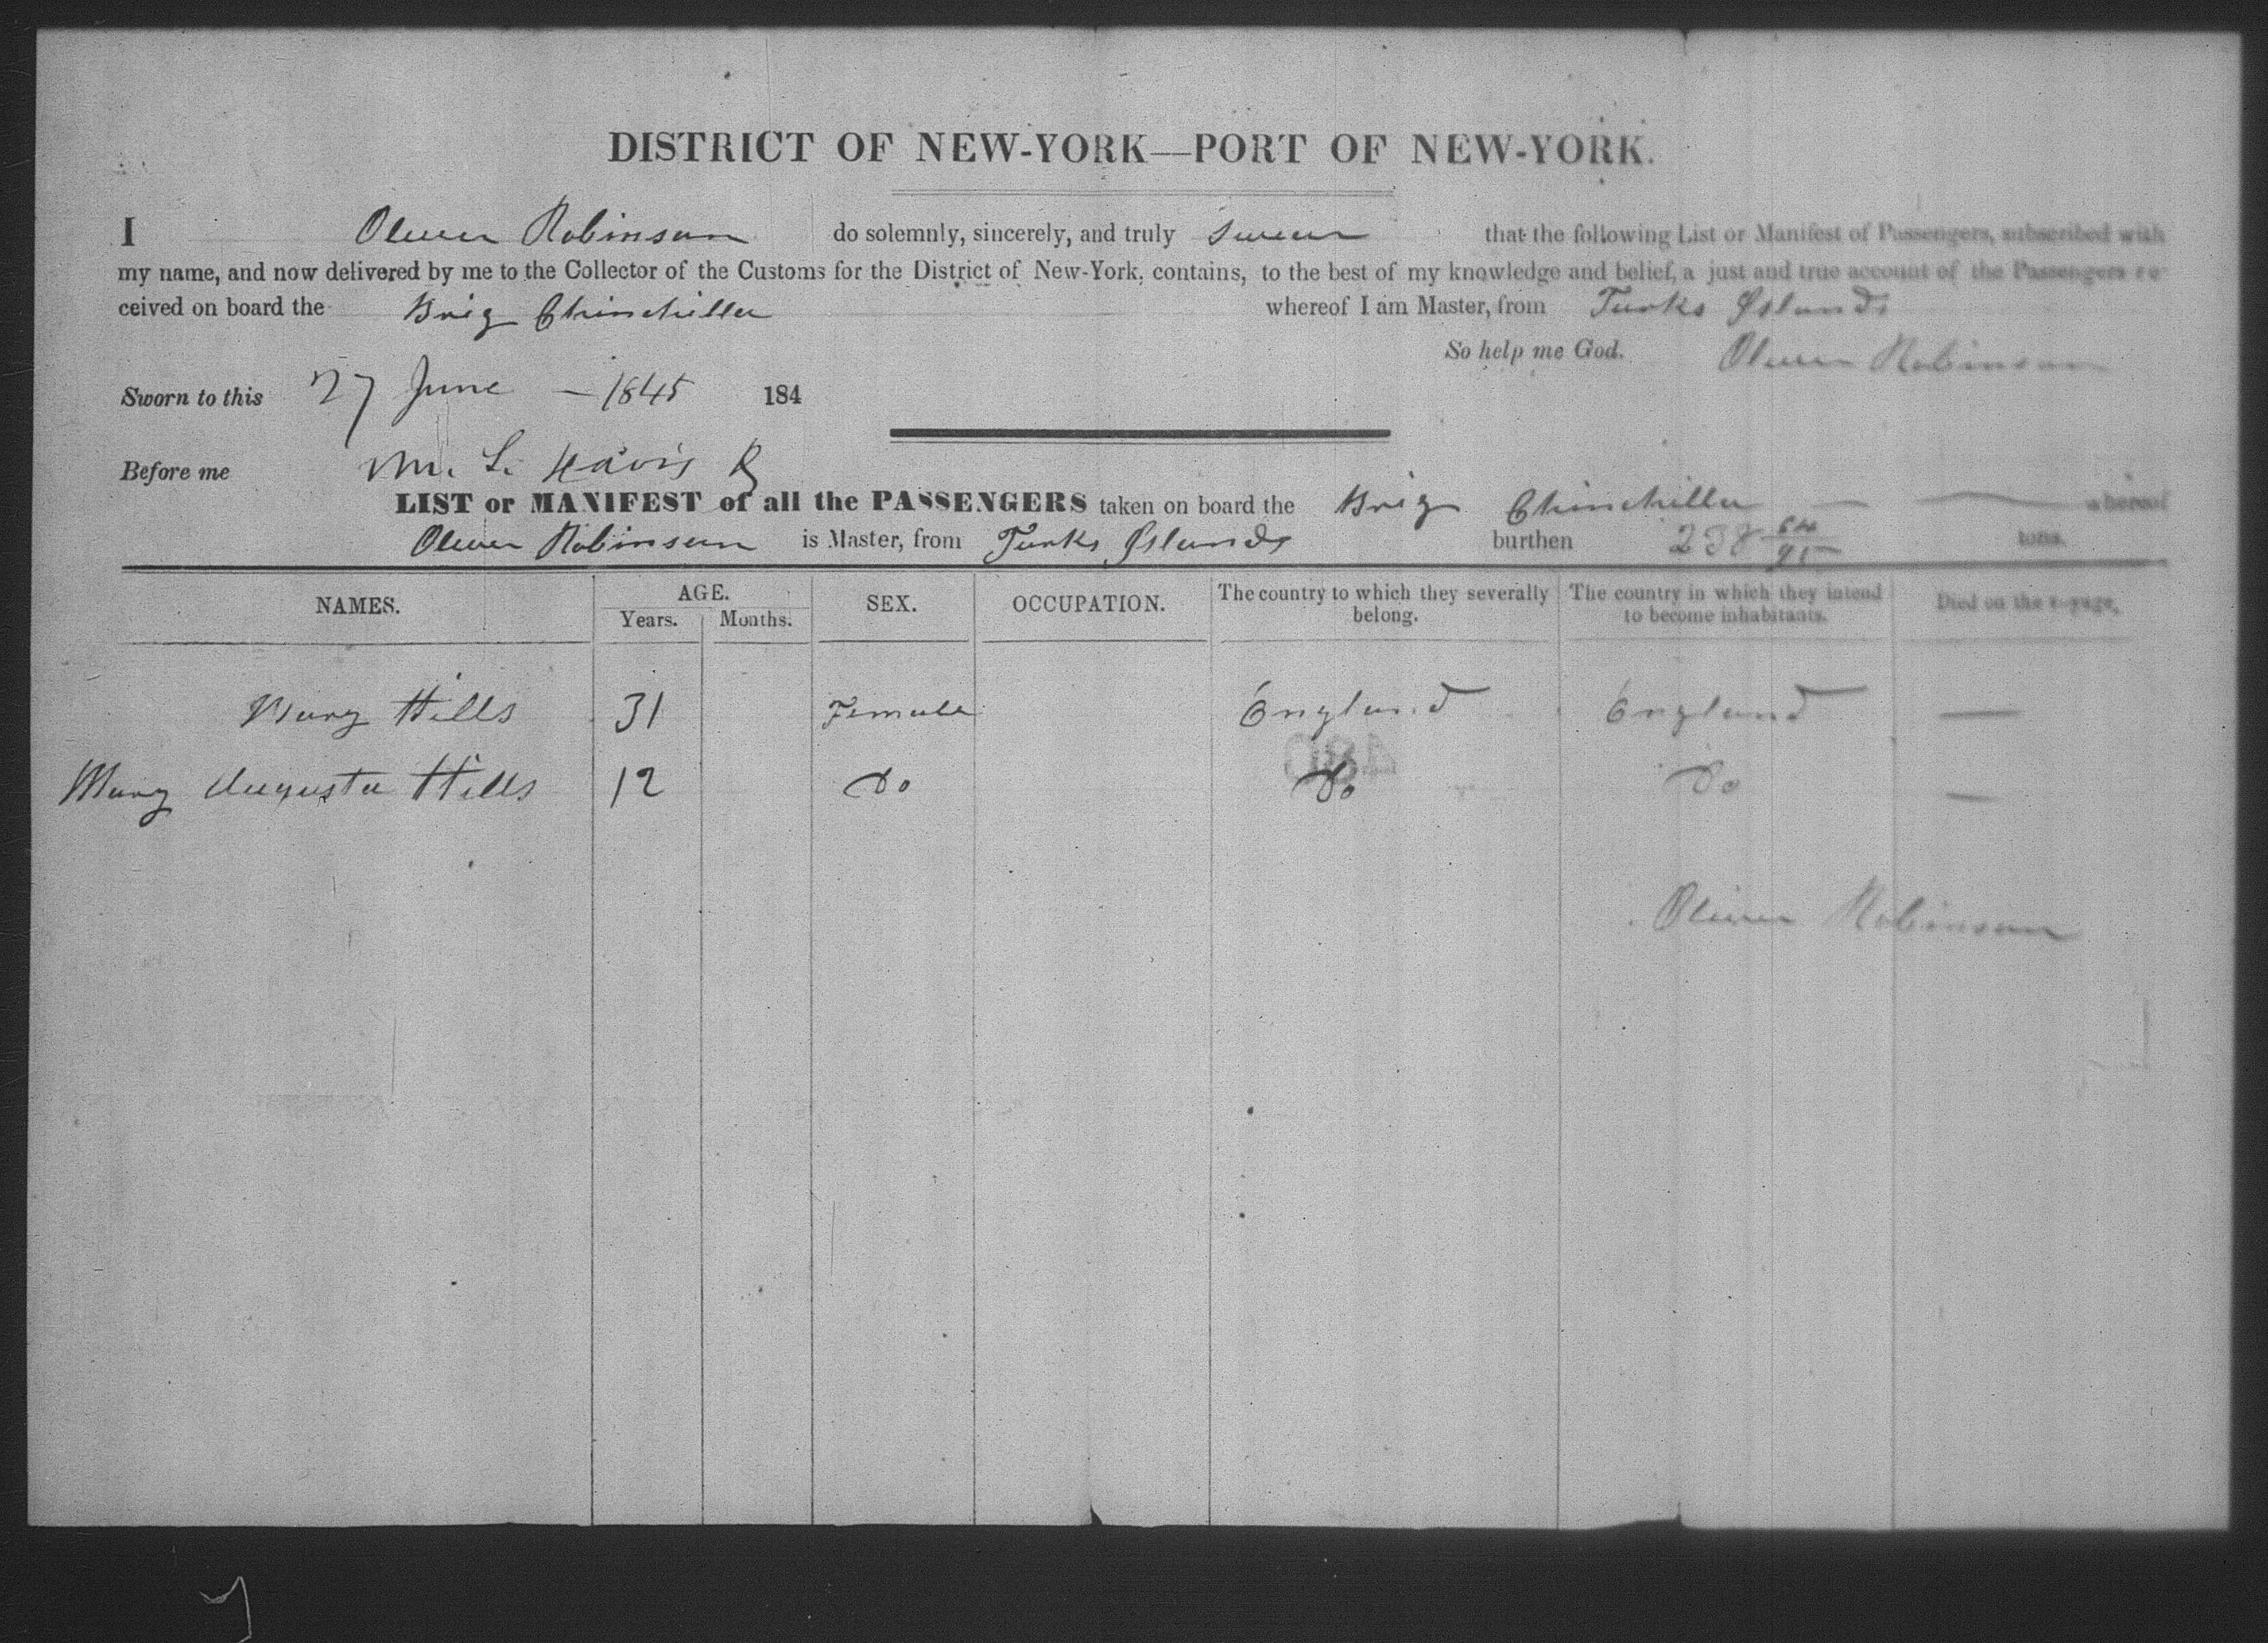 DISTRICT OF NEW-YORK—PORT OF NEW-YORK.
I Oliver Robinson do solemnly, sincerely, and truly swear that the following List or Manifest of Passengers, subscribed with
my name, and now delivered by me to the Collector of the Customs for the District of New-York, contains, to the best of my knowledge and belief, a just and true account of the Passengers re-
ceived on board the Brig Chinchilla whereof I am Master, from Turks Islands
So help me God. Oliver Robinson
Sworn to this 27 June — 1845 184
Before me M. L. Davis
LIST or MANIFEST of all the PASSENGERS taken on board the Brig Chinchilla — whereof
Oliver Robinson is Master, from Turks Islands burthen 238 64/95 tons.
NAMES. AGE. SEX. OCCUPATION. The country to which they severally belong. The country in which they intend to become inhabitants. Died on the voyage.
Years. Months.
Mary Hills 31 Female England England —
Mary Augusta Hills 12 Do Do Do —
Oliver Robinson